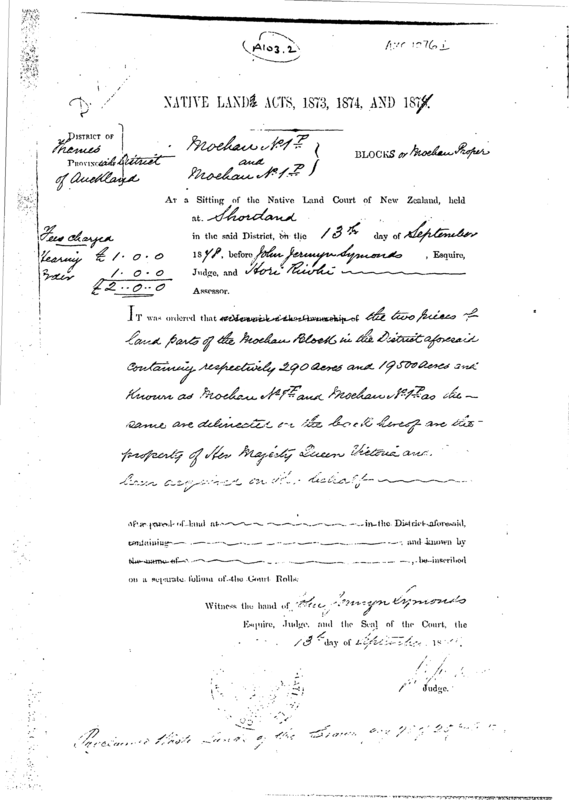 A103.2
NATIVE LAND ACTS, 1873, 1874, AND 1874.
DISTRICT OF
Thames
PROVINCIAL District
of Auckland
Moehau No 1
and
Moehau No 1
BLOCKS or Moehau Proper
AT a Sitting of the Native Land Court of New Zealand, held
at Shortland
in the said District, on the 13th day of September
1878, before John Jermyn Symonds, Esquire,
Judge, and Hori Riwhi
Assessor.
Fees charged
Hearing £1.0.0
Order 1.0.0
£2.0.0
IT was ordered that the two pieces of
land parts of the Moehau Block in the District aforesaid
containing respectively 290 acres and 19500 acres and
known as Moehau No 1 and Moehau No 1 as the
same are delineated on the back hereof are the
property of Her Majesty Queen Victoria and
been acquired on Her behalf
of land at in the District aforesaid,
containing and known by
the name of , be inscribed
on a separate folium of the Court Rolls.
Witness the hand of John Jermyn Symonds
Esquire, Judge, and the Seal of the Court, the
13th day of September 18
Judge.
Proclaimed Waste Lands of the Crown